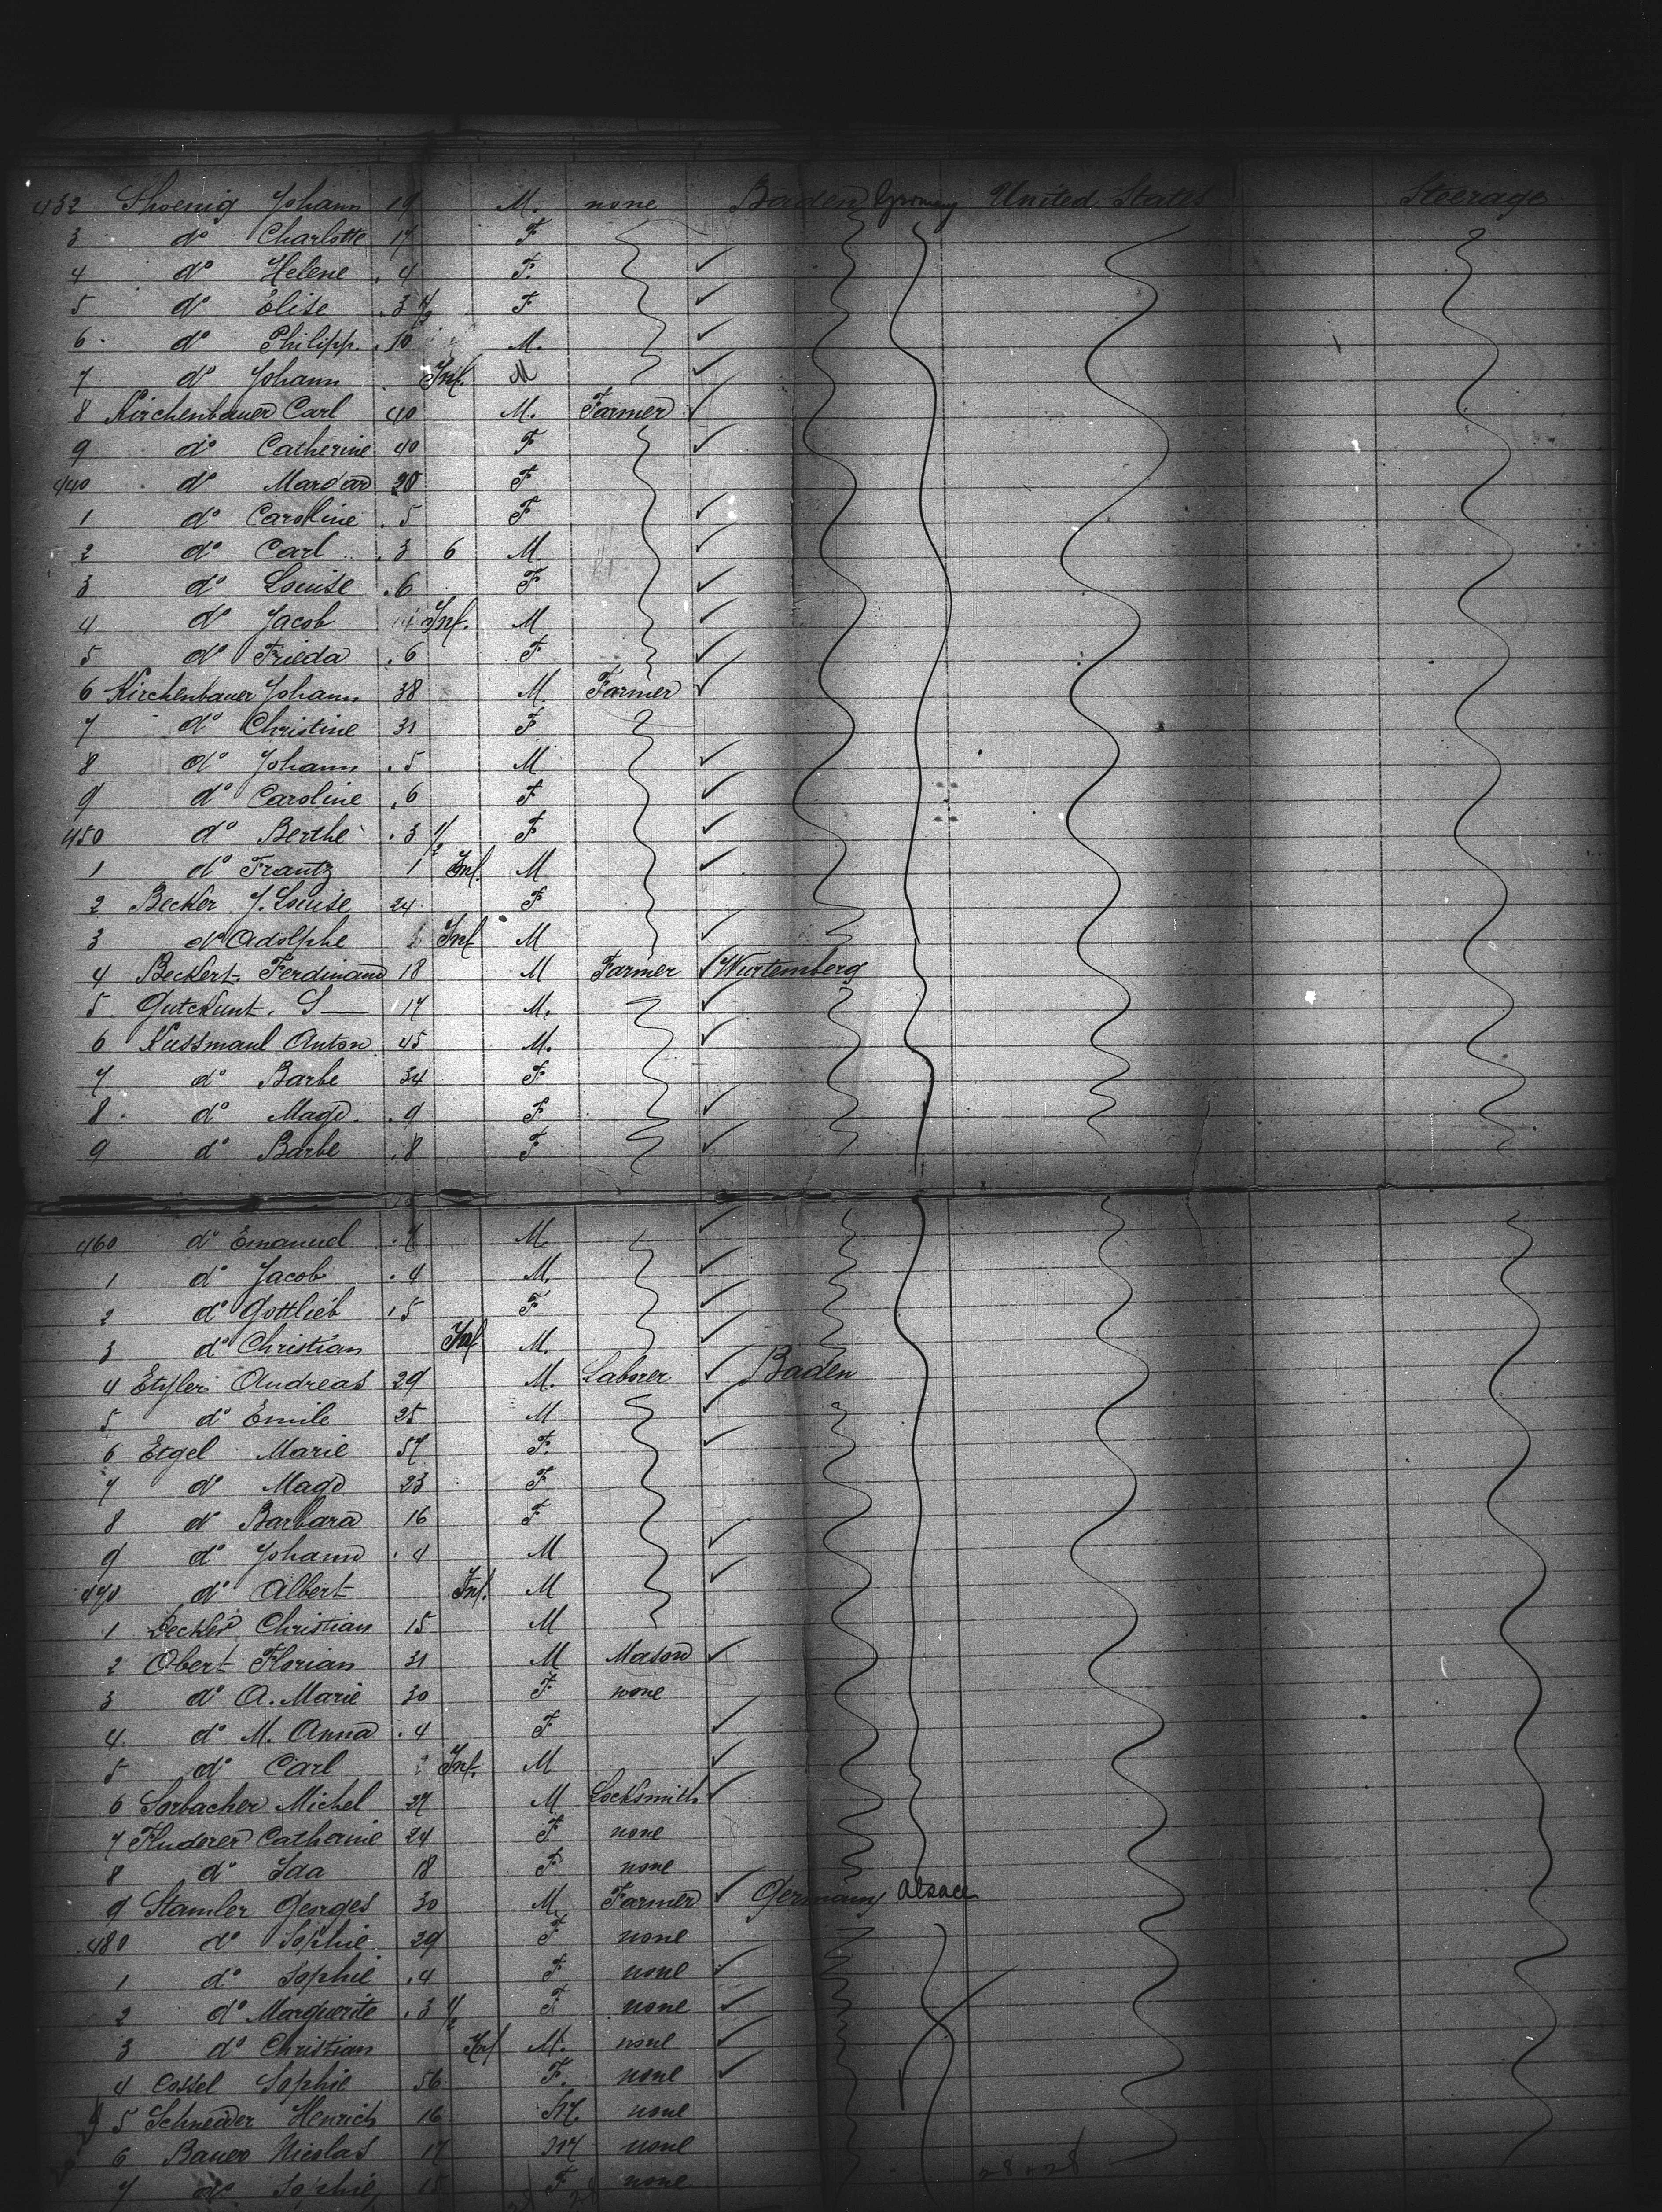 432 Shoenig Johann 19 M. none Baden Germany United States Steerage
3 do Charlotte 17 F
4 do Helene . 4 F.
5 do Elise . 3 1/2 F
6 do Philipp . 10 M.
7 do Johann Inf. M
8 Kirchenbauer Carl 40 M. Farmer
9 do Catherine 40 F
440 do 20 F
1 do Caroline . 5 F
2 do Carl . 3 6 M
3 do Louise . 6 F
4 do Jacob Inf. M
5 do Frieda . 6 F
6 Kirchenbauer Johann 38 M. Farmer
7 do Christine 31 F
8 do Johann . 5 M
9 do Caroline . 6 F
450 do Berthe . 3 1/2 F
1 do Frantz 1 Inf. M
2 Becker J. Louise 24 F
3 do Adolphe Inf M
4 Beckert Ferdinand 18 M Farmer Wurtemberg
5 Gutckunt. S— 17 M.
6 Kussmaul Anton 45 M.
7 do Barbe 34 F
8 do Magd. . 9 F
9 do Barbe . 8 F
460 do Emanuel . 7 M.
1 do Jacob . 4 M.
2 do Gottlieb . 5 F
3 do Christian Inf M.
4 Andreas 29 M. Laborer Baden
5 do Emile 25 M
6 Etgel Marie 57 F.
7 do Magd 23 F
8 do Barbara 16 F
9 do Johann . 4 M
470 do Albert Inf. M
1 Christian 15 M
2 Obert Florian 31 M Mason
3 do A. Marie 30 F none
4 do M. Anna . 4 F
5 do Carl Inf. M
6 Sorbacher Michel 27 M Locksmith
7 Fluderer Catherine 24 F none
8 do Ida 18 F none
9 Stamler Georges 30 M. Farmer Germany Alsace
480 do Sophie 29 F none
1 do Sophie . 4 F none
2 do Marguerite . 3 1/2 F none
3 do Christian Inf M. none
4 Cossel Sophie 56 F. none
5 Schneider Henrich 16 M. none
6 Bauer Nicolas 17 M none
7 do Sophie 15 F none